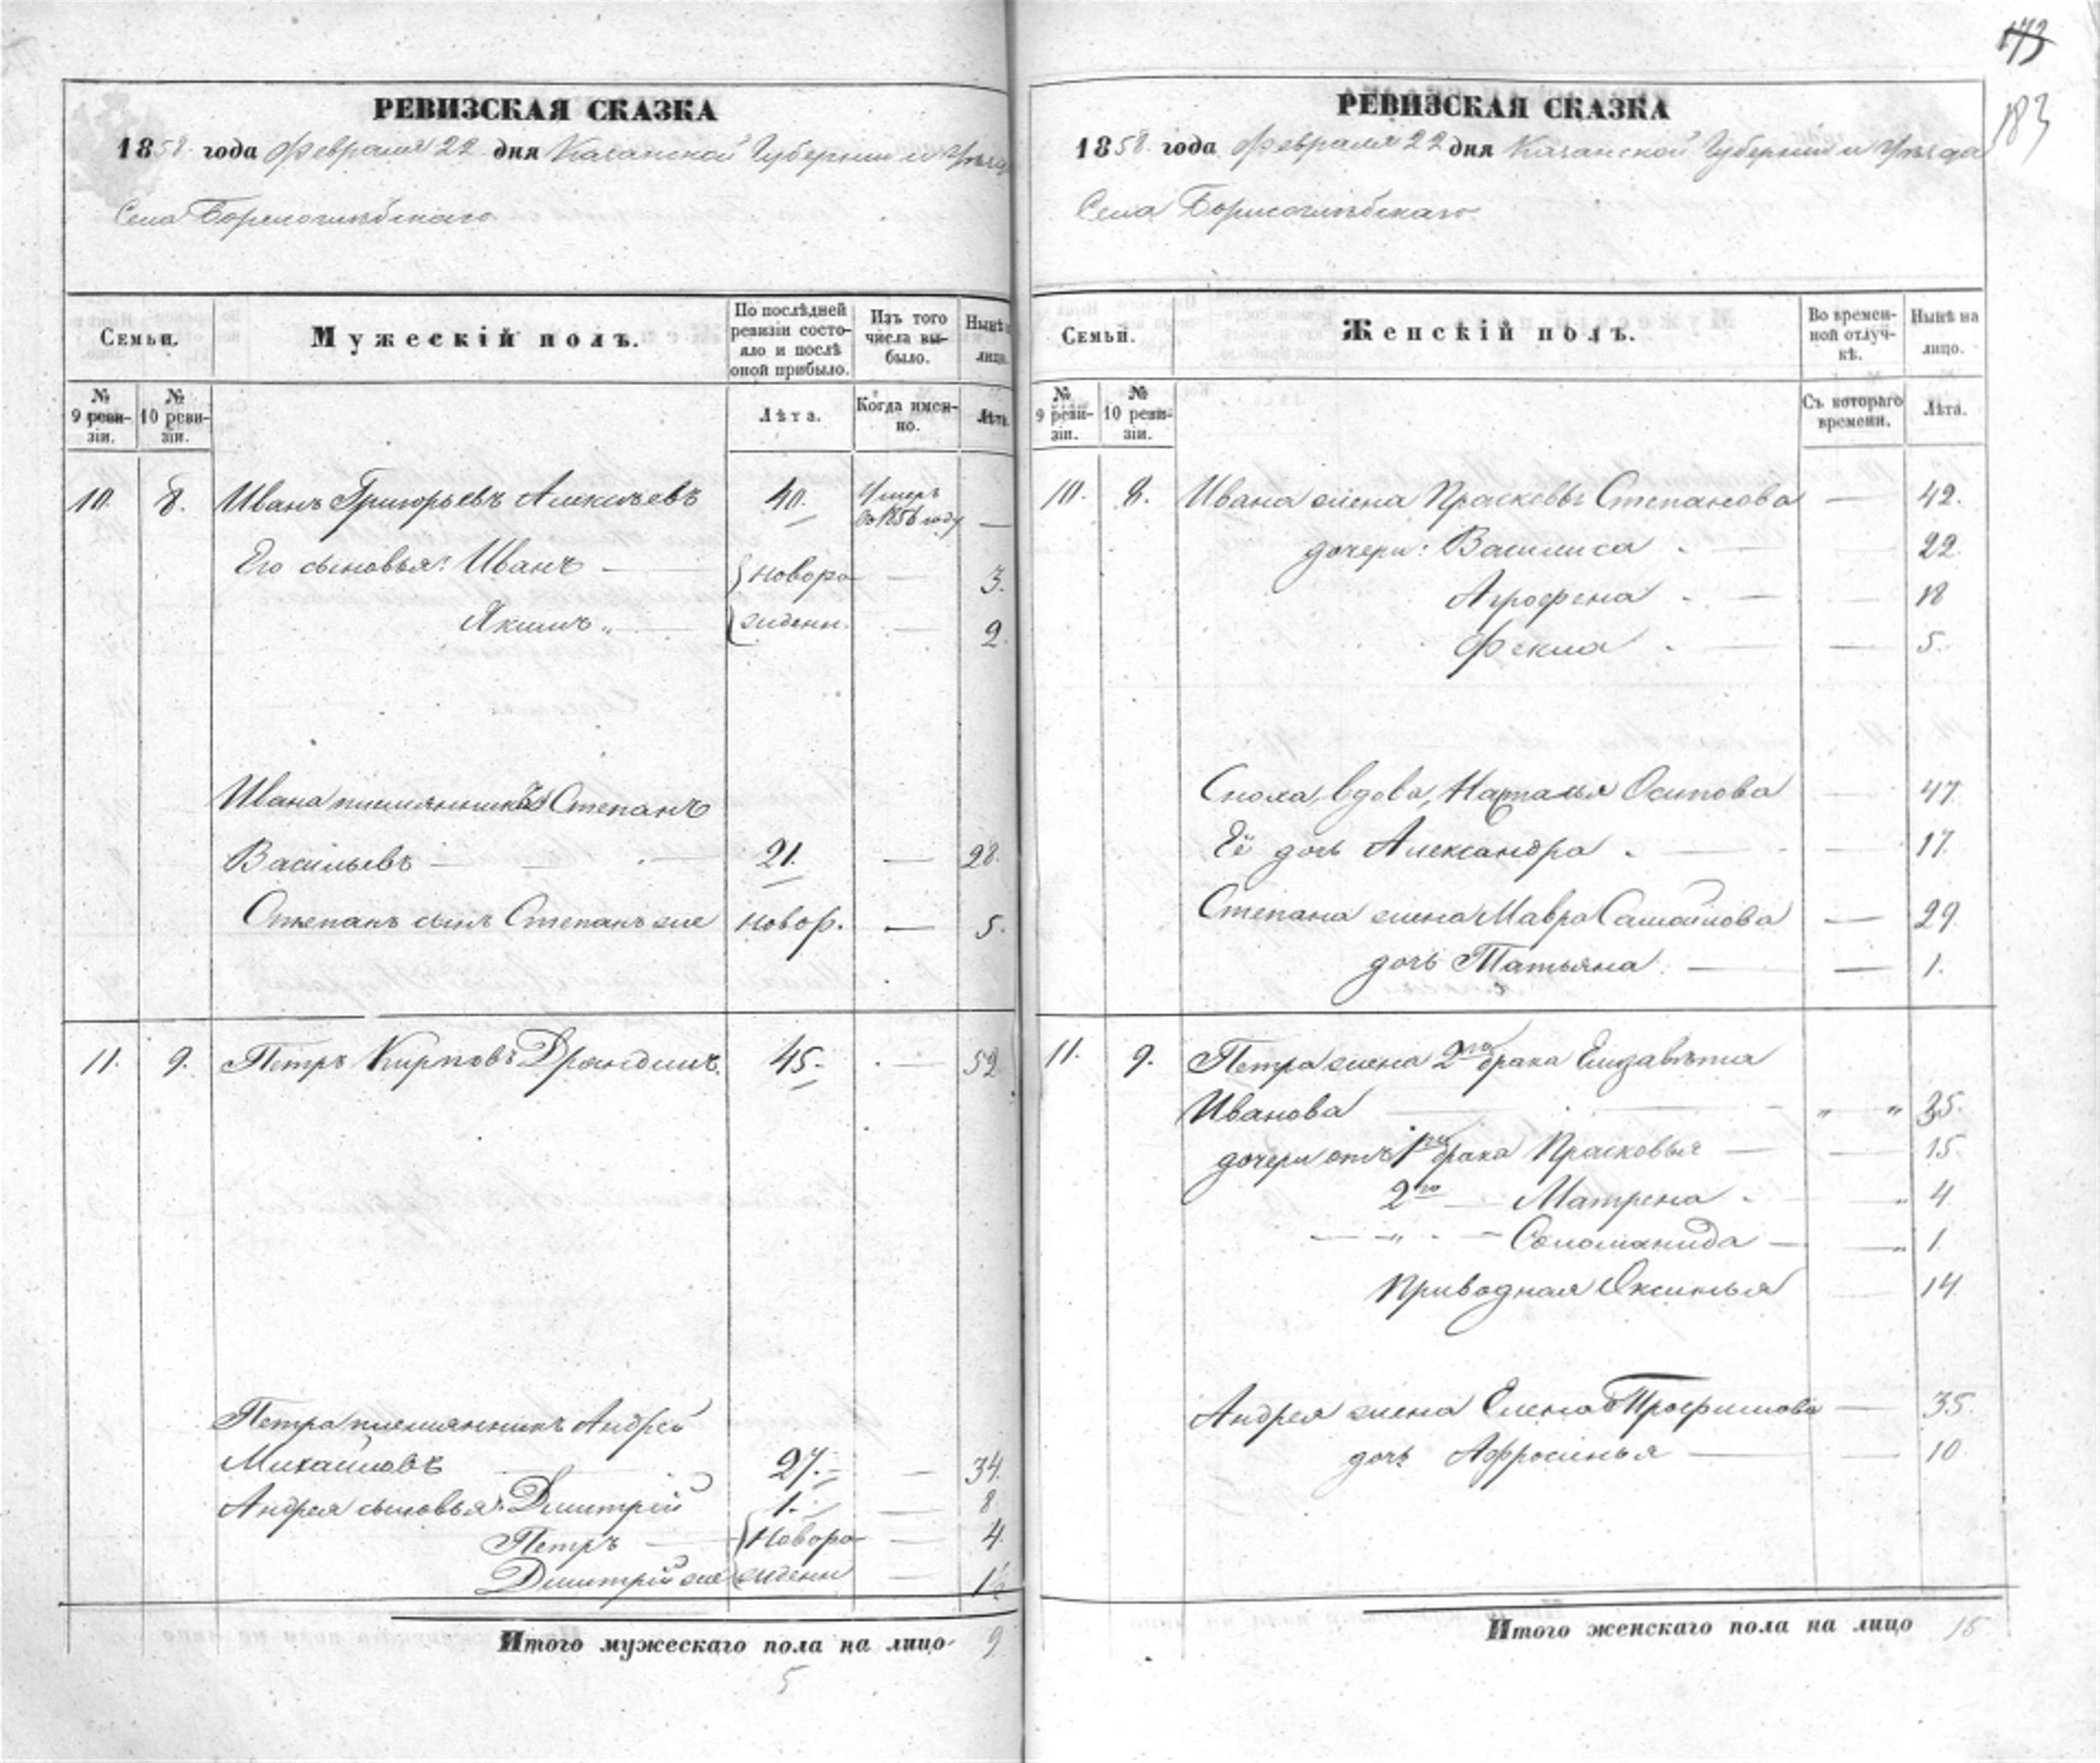 173
183
РЕВИЗСКАЯ СКАЗКА
1858 года Февраля 22 дня Казанской Губернии и Уѣзда
Села Борисоглѣбскаго
Семьи.
Мужескій полъ.
По послѣдней ревизіи состояло и послѣ оной прибыло.
Изъ того числа выбыло.
Нынѣ
лицо.
№ 9 ревизіи.
№ 10 ревизіи.
Лѣта.
Когда именно.
Лѣта.
10. 8. Иванъ Григорьевъ Алексѣевъ 40. Умеръ въ 1856 году —
Его сыновья: Иванъ — новоро — 3.
Якимъ — жденн. — 2.
Ивана племянникъ Степанъ
Васильевъ — 21. — 28.
Степанъ сынъ Степанъ же новор. — 5.
11. 9. Петръ Карповъ 45. — 52
Петра племянникъ Андрей
Михайловъ 27. — 34.
Андрея сыновья: Дмитрій 1. — 8
Петръ — Новоро — 4.
Дмитрій же жденн — 1½
Итого мужескаго пола на лицо 9
5
РЕВИЗСКАЯ СКАЗКА
1858 года Февраля 22 дня Казанской Губернии и Уѣзда
Села Борисоглѣбскаго
Семьи.
Женскій полъ.
Во временной отлучкѣ.
Нынѣ на лицо.
№ 9 ревизіи.
№ 10 ревизіи.
Съ котораго времени.
Лѣта.
10. 8. Ивана жена Прасковья Степанова — 42.
дочери: Василиса — 22
Агрофена — 18
Фекла — 5.
Сноха, вдова, Наталья Осипова — 47
Её дочь Александра — 17.
Степана жена Мавра Самойлова — 29
дочь Татьяна — 1.
11. 9. Петра жена 2го брака Елизавѣта
Иванова — " " 35.
дочери отъ 1го брака Прасковья — 15.
2го — Матрена — " 4
— " — Соломанида — " 1
Приводная Оксинья — 14
Андрея жена Елена Трофимова — 35.
дочь Афросинья — 10
Итого женскаго пола на лицо 15